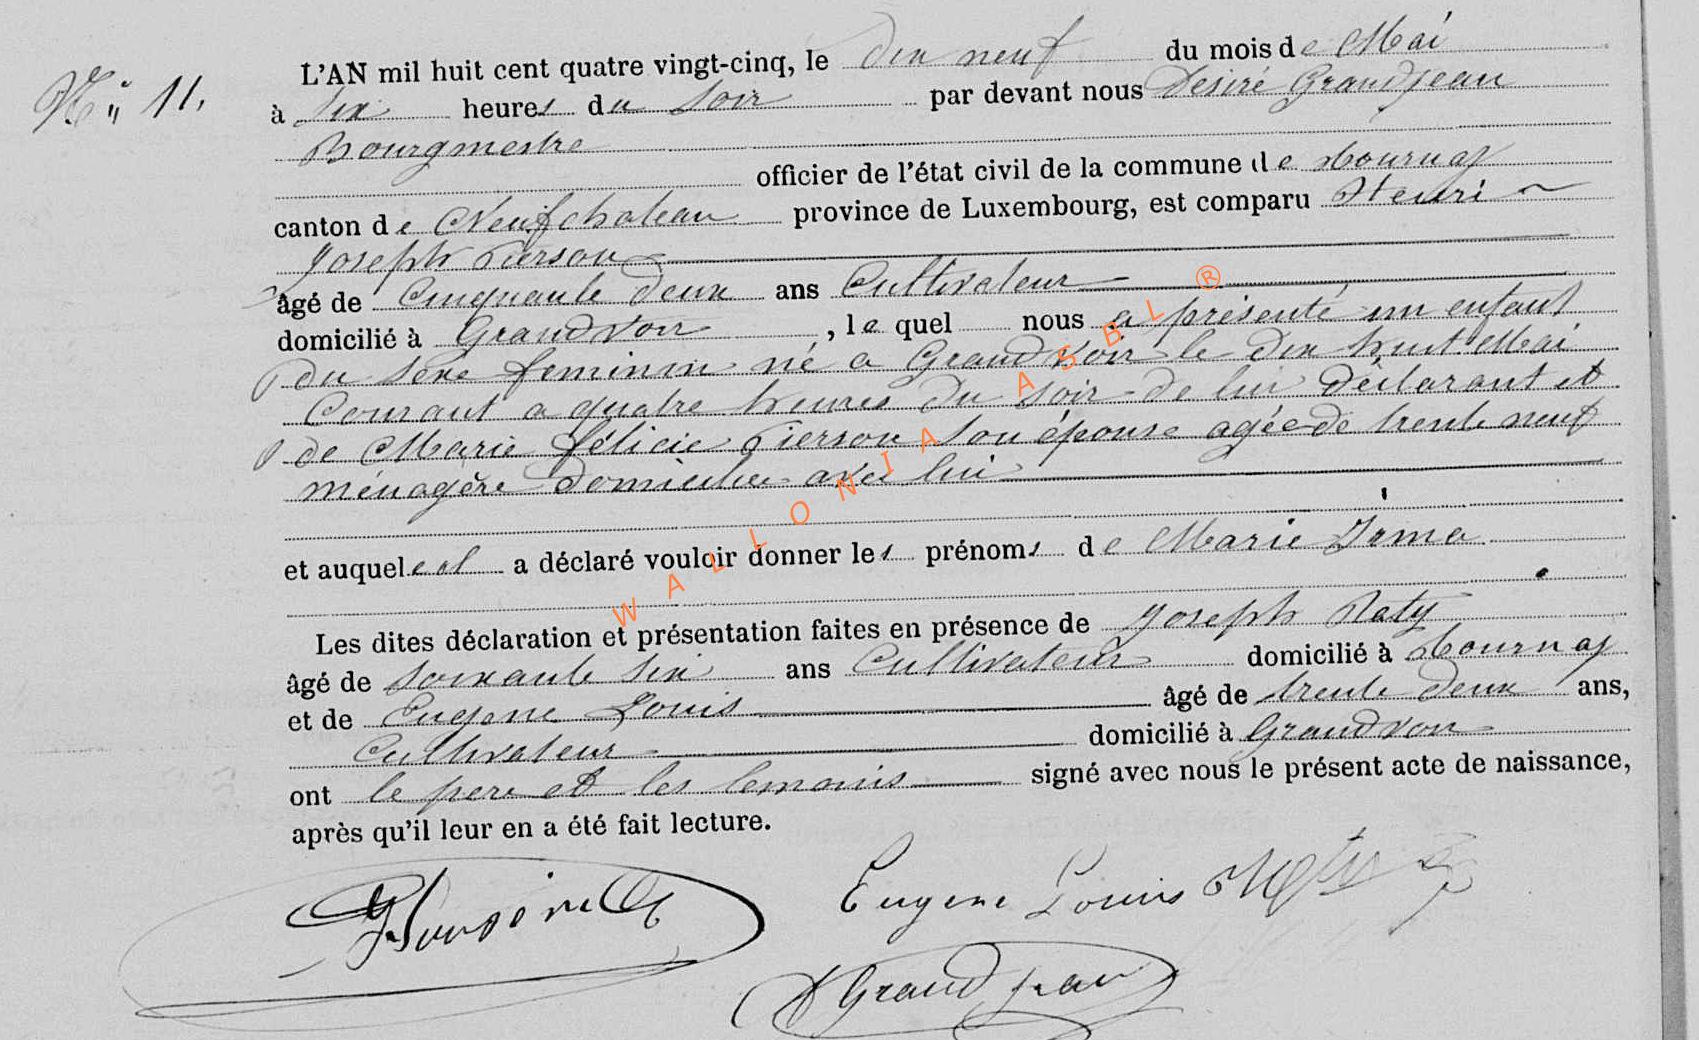 N° 11.
L'AN mil huit cent quatre vingt-cinq, le dix neuf du mois de Mai
à six heures du soir par devant nous Désiré Grandjean
Bourgmestre
officier de l'état civil de la commune de Tournay
canton de Neufchateau province de Luxembourg, est comparu Henri
Joseph Pierson
âgé de Cinquante deux ans Cultivateur
domicilié à Grandvoir, le quel nous a présenté un enfant
du sexe feminin né a Grandvoir le dix huit Mai
Courant a quatre heures du soir de lui déclarant et
de Marie Félicie Pierson son épouse agée de trente neuf
ménagère domiciliée avec lui
et auquel el a déclaré vouloir donner les prénoms de Marie Irma
Les dites déclaration et présentation faites en présence de Joseph Raty
âgé de soixante six ans Cultivateur domicilié à Tournay
et de Eugene Louis âgé de trente deux ans,
Cultivateur domicilié à Grandvoir
ont le pere et les temoins signé avec nous le présent acte de naissance,
après qu'il leur en a été fait lecture.
Eugene Louis
D Grandjean
WALLONIA ASBL ®